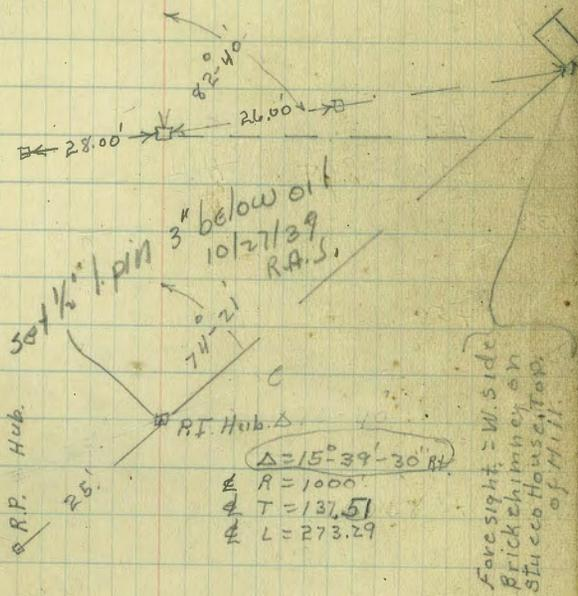 82°-40'
28.00'
26.00'
Set 1/2" I. pin 3" below oil
10/27/39
R.A.S.
74°-21'
P.I. Hub. Δ
R.P. Hub.
25'
Δ=15°-39'-30" Rt.
℄ R=1000'
℄ T=137.51
℄ L=273.29
Foresight = W. side
Brick chimney on
Stucco House, Top
of Hill.